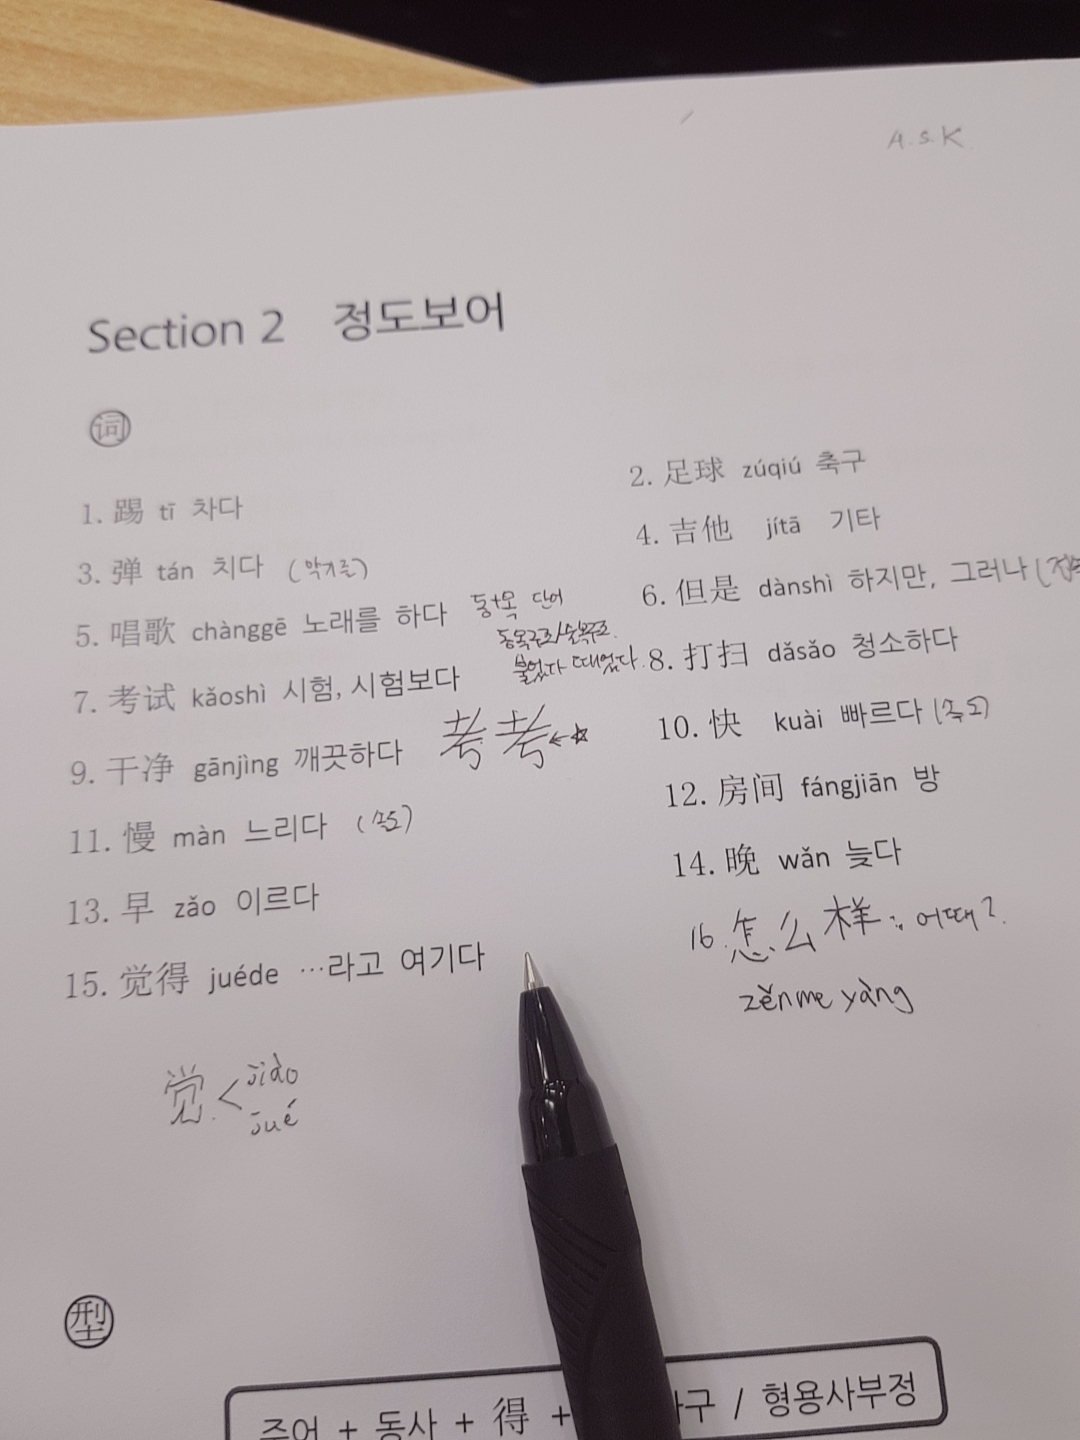 A.S.K
Section 2 정도보어
词
1. 踢 tī 차다
2. 足球 zúqiú 축구
3. 弹 tán 치다 (악기를)
4. 吉他 jítā 기타
5. 唱歌 chànggē 노래를 하다 동+목 단어
동목구조/술목구조.
붙었다 떼었다.
6. 但是 dànshì 하지만, 그러나
7. 考试 kǎoshì 시험, 시험보다
8. 打扫 dǎsǎo 청소하다
9. 干净 gānjìng 깨끗하다 考考←☆
10. 快 kuài 빠르다 (속도)
11. 慢 màn 느리다 (속도)
12. 房间 fángjiān 방
13. 早 zǎo 이르다
14. 晚 wǎn 늦다
15. 觉得 juéde …라고 여기다
16. 怎么样: 어때?
zěnme yàng
觉 < jiào
jué
型
주어 + 동사 + 得 + 구 / 형용사부정